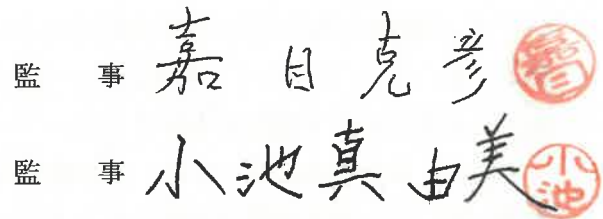 監 事 嘉目克彦 嘉目
監 事 小池真由美 小池